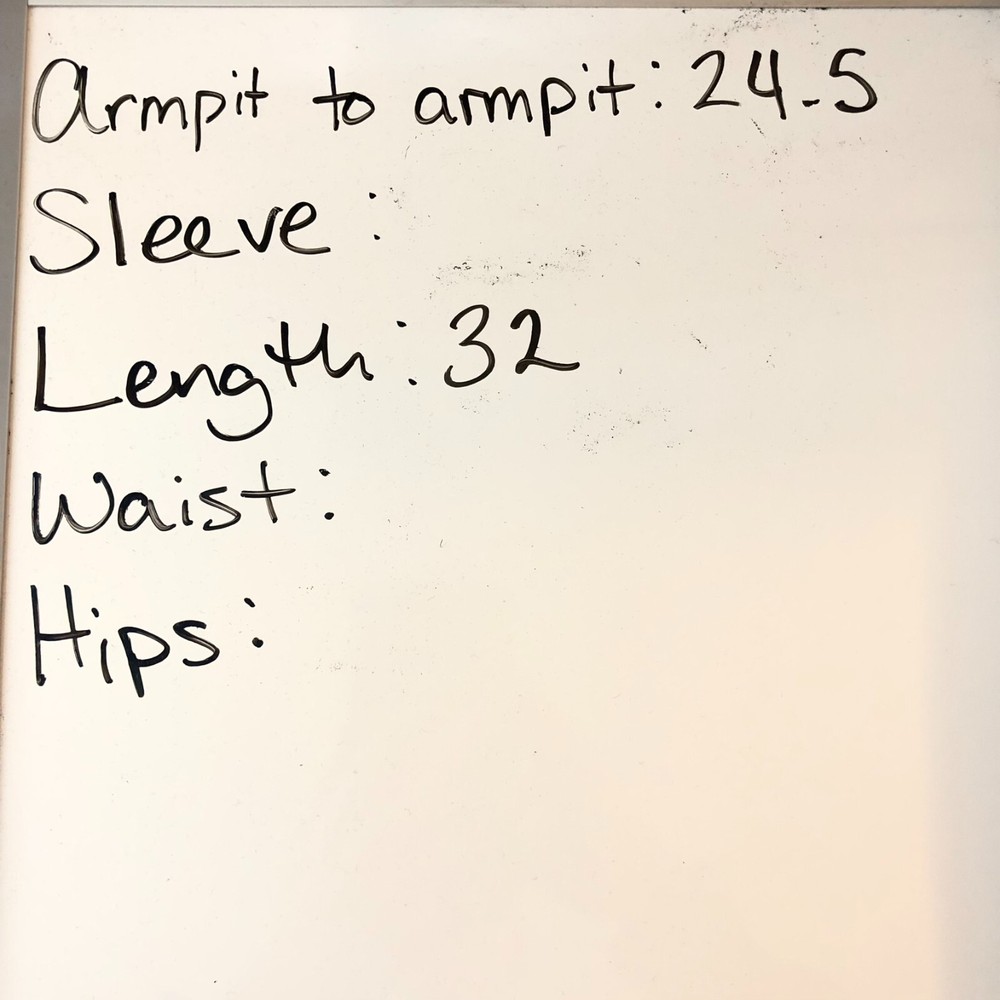 Armpit to armpit: 24.5
Sleeve:
Length: 32
Waist:
Hips: